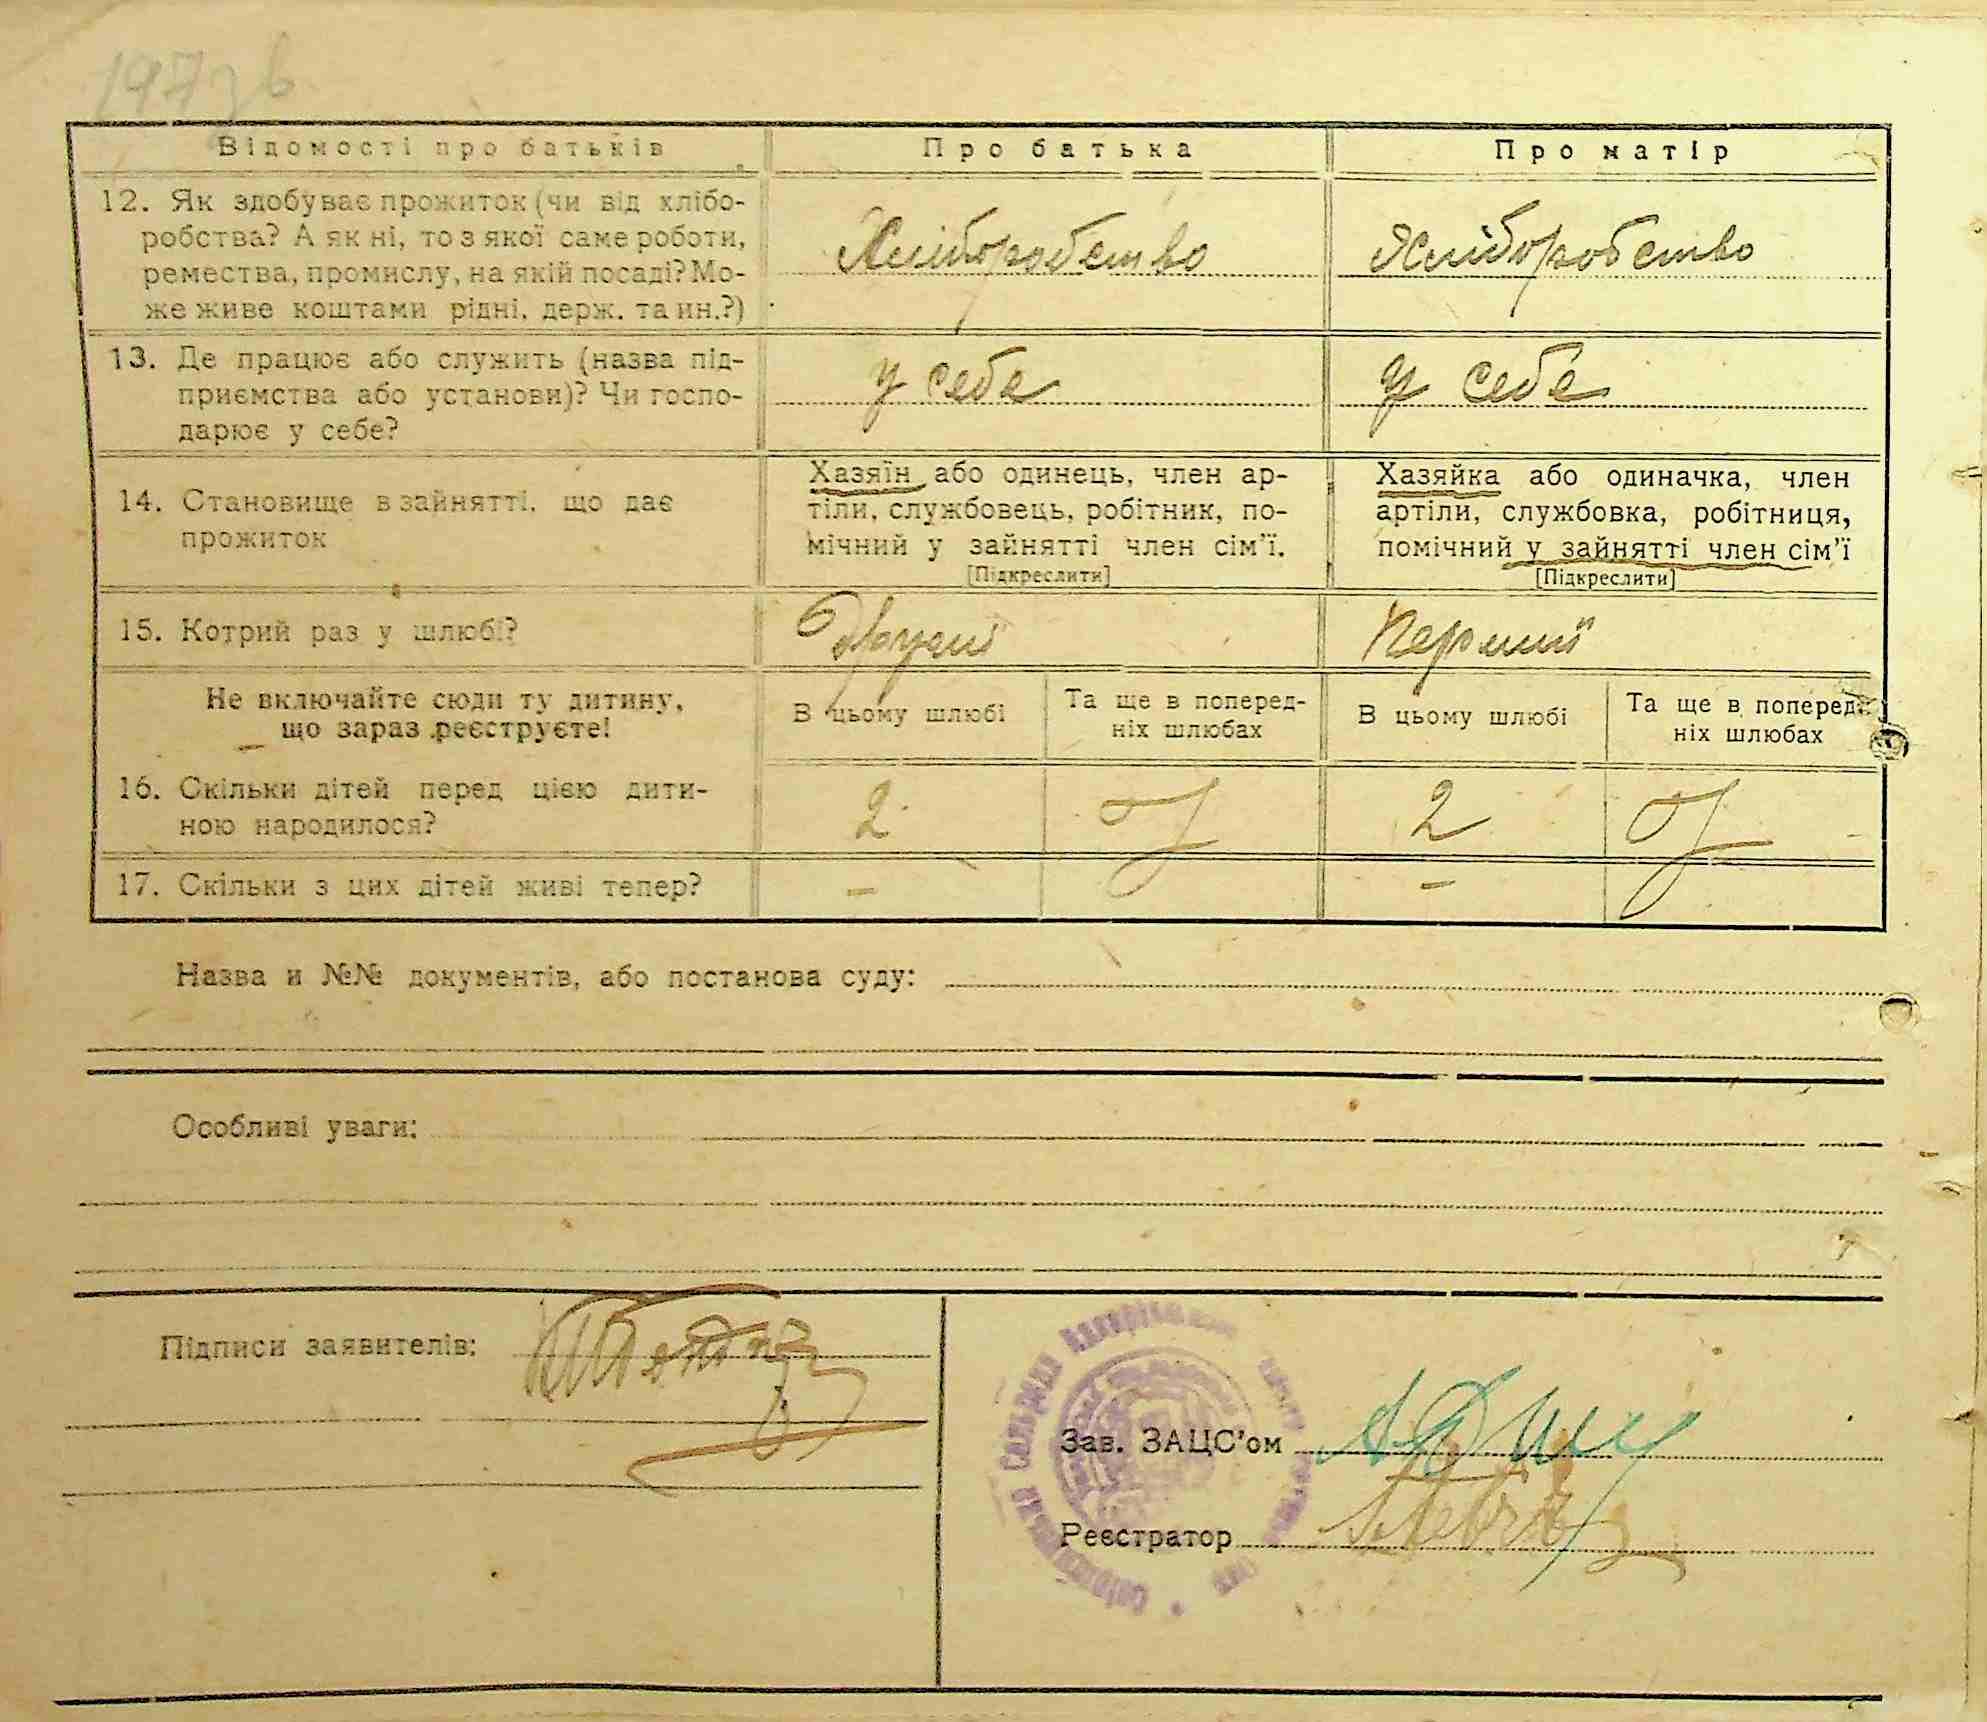 197 зв
Відомості про батьків
Про батька
Про матір
12. Як здобуває прожиток (чи від хлібо-
робства? А як ні, то з якої саме роботи,
ремества, промислу, на якій посаді? Мо-
же живе коштами рідні, держ. та ин.?)
Хліборобство
Хліборобство
13. Де працює або служить (назва під-
приємства або установи)? Чи госпо-
дарює у себе?
у себе
у себе
14. Становище в зайнятті, що дає
прожиток
Хазяїн або одинець, член ар-
тіли, службовець, робітник, по-
мічний у зайнятті член сім'ї.
[Підкреслити]
Хазяйка або одиначка, член
артіли, службовка, робітниця,
помічний у зайнятті член сім'ї
[Підкреслити]
15. Котрий раз у шлюбі?
Другий
Перший
Не включайте сюди ту дитину,
що зараз реєструєте!
В цьому шлюбі
Та ще в поперед-
ніх шлюбах
В цьому шлюбі
Та ще в поперед-
ніх шлюбах
16. Скільки дітей перед цією дити-
ною народилося?
2
2
17. Скільки з цих дітей живі тепер?
–
–
Назва и №№ документів, або постанова суду:
Особливі уваги:
Підписи заявителів:
Зав. ЗАЦС'ом
Реєстратор